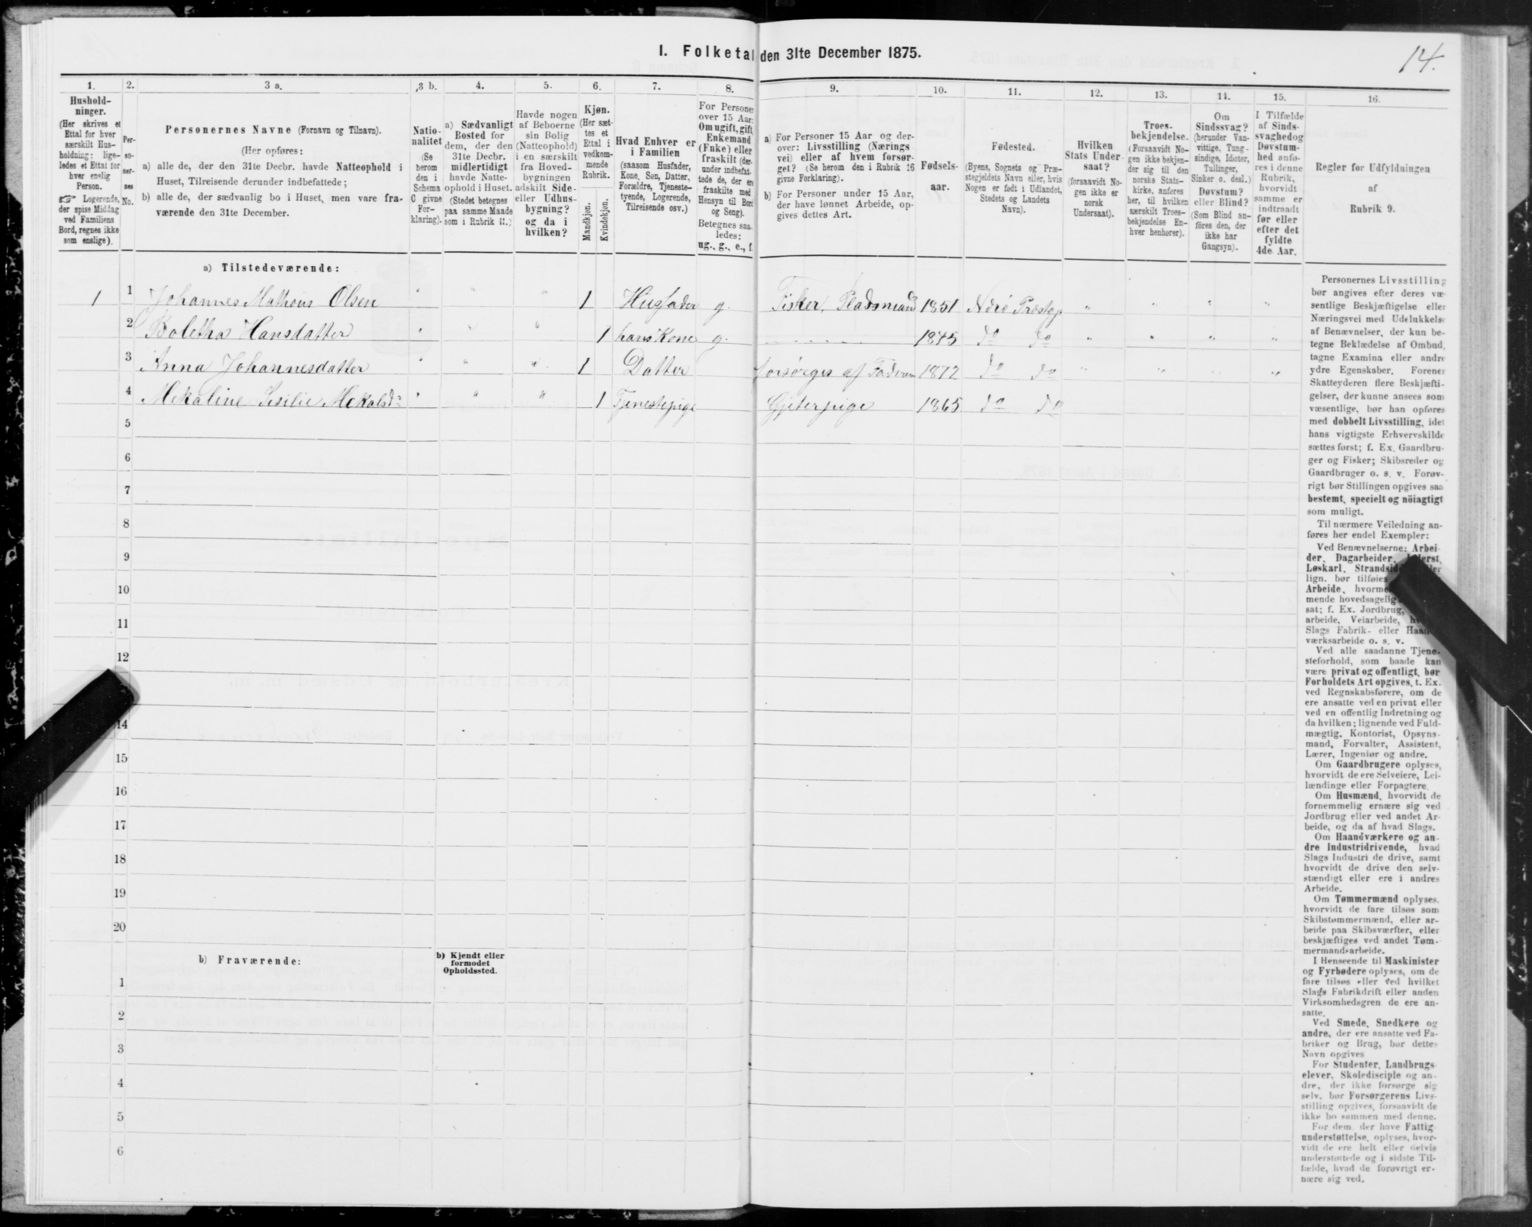 I. Folketal den 31te December 1875.
14.
1. 2. 3 a. 3 b. 4. 5. 6. 7. 8. 9. 10. 11. 12. 13. 14. 15. 16.
Hushold-
ninger.
(Her skrives et
Ettal for hver
særskilt Hus-
holdning; lige-
ledes et Ettal for
hver enslig
Person.
☞ Logerende,
der spise Middag
ved Familiens
Bord, regnes ikke
som enslige).
Per-
so-
ner-
nes
No.
Personernes Navne (Fornavn og Tilnavn).
(Her opføres:
a) alle de, der den 31te Decbr. havde Natteophold i
Huset, Tilreisende derunder indbefattede;
b) alle de, der sædvanlig bo i Huset, men vare fra-
værende den 31te December.
Natio-
nalitet
(Se
herom
den i
Schema
C givne
For-
klaring).
a) Sædvanligt
Bosted for
dem, der den
31te Decbr.
midlertidigt
havde Natte-
ophold i Huset.
(Stedet betegnes
paa samme Maade
som i Rubrik 11.)
Havde nogen
af Beboerne
sin Bolig
(Natteophold)
i en særskilt
fra Hoved-
bygningen
adskilt Side-
eller Udhus-
bygning?
og da i
hvilken?
Kjøn.
(Her sæt-
tes et
Ettal i
vedkom-
mende
Rubrik.
Mandkjøn.
Kvindekjøn.
Hvad Enhver er
i Familien
(saasom Husfader,
Kone, Søn, Datter,
Forældre, Tjeneste-
tyende, Logerende,
Tilreisende osv.)
For Personer
over 15 Aar:
Om ugift, gift,
Enkemand
(Enke) eller
fraskilt (der-
under indbefat-
tede de, der ere
fraskilte med
Hensyn til Bord
og Seng).
Betegnes saa-
ledes:
ug., g., e., f.
a) For Personer 15 Aar og der-
over: Livsstilling (Nærings
vei) eller af hvem forsør-
get? (Se herom den i Rubrik 16
givne Forklaring).
b) For Personer under 15 Aar,
der have lønnet Arbeide, op-
gives dettes Art.
Fødsels-
aar.
Fødested.
(Byens, Sognets og Præ-
stegjeldets Navn eller, hvis
Nogen er født i Udlandet,
Stedets og Landets
Navn).
Hvilken
Stats Under-
saat?
(forsaavidt No-
gen ikke er
norsk
Undersaat).
Troes-
bekjendelse.
(Forsaavidt No-
gen ikke bekjen-
der sig til den
norske Stats-
kirke, anføres
her, til hvilken
særskilt Troes-
bekjendelse En-
hver henhører).
Om
Sindssvag?
(herunder Van-
vittige, Tung-
sindige, Idioter,
Tullinger,
Sinker o. desl.)
Døvstum?
eller Blind?
(Som Blind an-
føres den, der
ikke har
Gangsyn).
I Tilfælde
af Sinds-
svaghed og
Døvstum-
hed anfø-
res i denne
Rubrik,
hvorvidt
samme er
indtraadt
før eller
efter det
fyldte
4de Aar.
Regler for Udfyldningen
af
Rubrik 9.
a) Tilstedeværende:
1 1 Johannes Mathæus Olsen 1 Husfader g Fisker, Pladsmand 1851 Nærö Præstg
2 Boletha Hansdatter 1 hans Kone g. 1845 do do
3 Anna Johannesdatter 1 Datter forsørges af Faderen 1872 do do
4 Mekaline Sesilie Mekalsd: 1 Tjenestepige Gjeterpige 1865 do do
5
6
7
8
9
10
11
12
14
15
16
17
18
19
20
b) Fraværende:
b) Kjendt eller
formodet
Opholdssted.
1
2
3
4
5
6
Personernes Livsstilling
bør angives efter deres væ-
sentlige Beskjæftigelse eller
Næringsvei med Udelukkelse
af Benævnelser, der kun be-
tegne Beklædelse af Ombud,
tagne Examina eller andre
ydre Egenskaber. Forener
Skatteyderen flere Beskjæfti-
gelser, der kunne ansees som
væsentlige, bør han opføres
med dobbelt Livsstilling, idet
hans vigtigste Erhvervskilde
sættes først; f. Ex. Gaardbru-
ger og Fisker; Skibsreder og
Gaardbruger o. s. v. Forøv-
rigt bør Stillingen opgives saa
bestemt, specielt og nöiagtigt
som muligt.
Til nærmere Veiledning an-
føres her endel Exempler:
Ved Benævnelserne: Arbei-
der, Dagarbeider,
Løskarl,
lign. bør tilføies
Arbeide,
mende hovedsagelig
sat; f. Ex. Jordbrug,
arbeide, Veiarbeide,
Slags Fabrik- eller Haand-
værksarbeide o. s. v.
Ved alle saadanne Tjene-
steforhold, som baade kan
være privat og offentligt, bør
Forholdets Art opgives, t. Ex.
ved Regnskabsførere, om de
ere ansatte ved en privat eller
ved en offentlig Indretning og
da hvilken; lignende ved Fuld-
mægtig, Kontorist, Opsyns-
mand, Forvalter, Assistent,
Lærer, Ingeniør og andre.
Om Gaardbrugere oplyses,
hvorvidt de ere Selveiere, Lei-
lændinge eller Forpagtere.
Om Husmænd, hvorvidt de
fornemmelig ernære sig ved
Jordbrug eller ved andet Ar-
beide, og da af hvad Slags.
Om Haandværkere og an-
dre Industridrivende, hvad
Slags Industri de drive, samt
hvorvidt de drive den selv-
stændigt eller ere i andres
Arbeide.
Om Tømmermænd oplyses,
hvorvidt de fare tilsøs som
Skibstømmermænd, eller ar-
beide paa Skibsværfter, eller
beskjæftiges ved andet Tøm-
mermandsarbeide.
I Henseende til Maskinister
og Fyrbødere oplyses, om de
fare tilsøs eller ved hvilket
Slags Fabrikdrift eller anden
Virksomhedsgren de ere an-
satte.
Ved Smede, Snedkere og
andre, der ere ansatte ved Fa-
briker og Brug, bør dettes
Navn opgives
For Studenter, Landbrugs-
elever, Skoledisciple og an-
dre, der ikke forsørge sig
selv, bør Forsørgerens Livs-
stilling opgives, forsaavidt de
ikke bo sammen med denne.
For dem, der have Fattig-
understøttelse, oplyses, hvor-
vidt de ere helt eller delvis
understøttede og i sidste Til-
fælde, hvad de forøvrigt er-
nære sig ved.